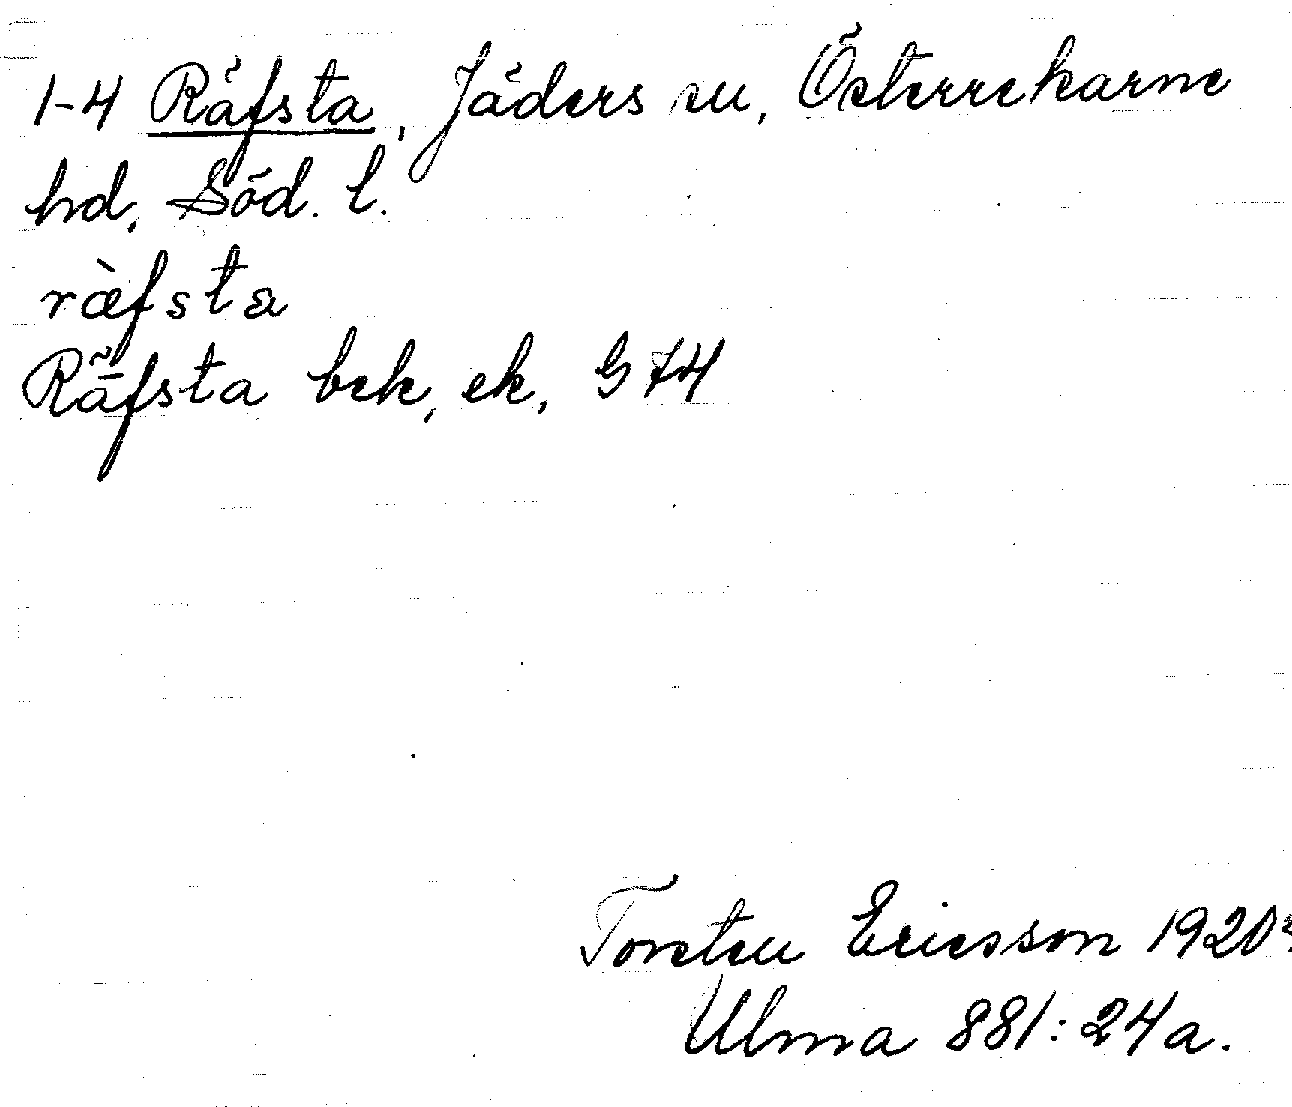 1-4 Räfsta, Jäders sn, Österrekarne
hd, Söd. l.
ræ̀fsta
Räfsta bek, ek, G 74
Torsten Ericsson 1920
Ulma 881:24a.